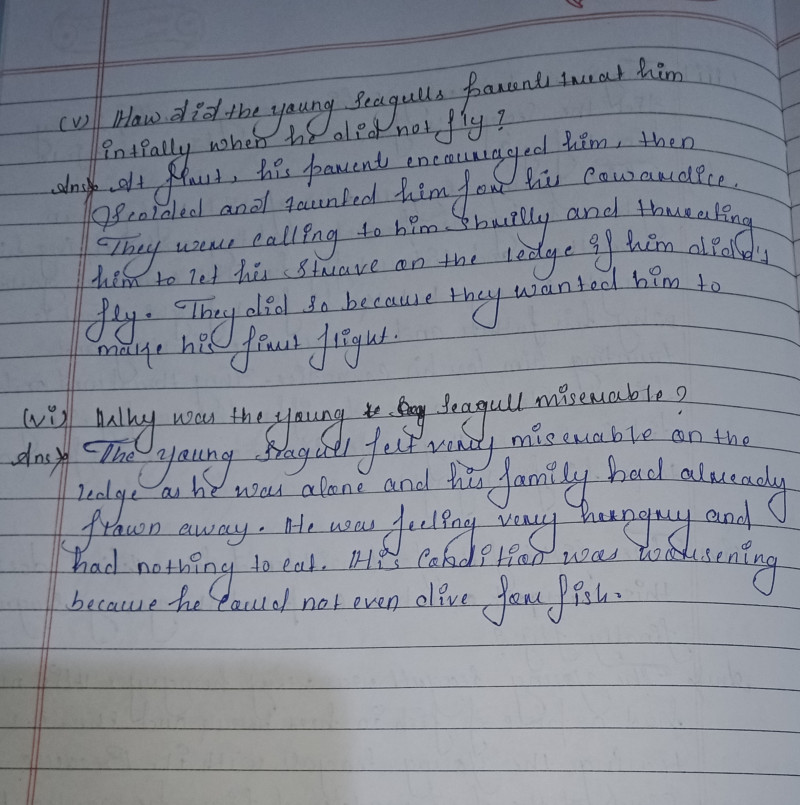 (v) How did the young seagulls parents treat him
intially when he did not fly?
Ans) At first, his parents encouraged him, then
Scolded and taunted him for his cowardice.
They were calling to him shrilly and threating
him to let his strave on the ledge if him didn't
fly. They did so because they wanted him to
make his first flight.
(vi) Why was the young seagull miserable?
Ans) The young seagull felt very miserable on the
ledge as he was alone and his family had already
flawn away. He was feeling very hungry and
had nothing to eat. His condition was worsening
because he could not even dive for fish.